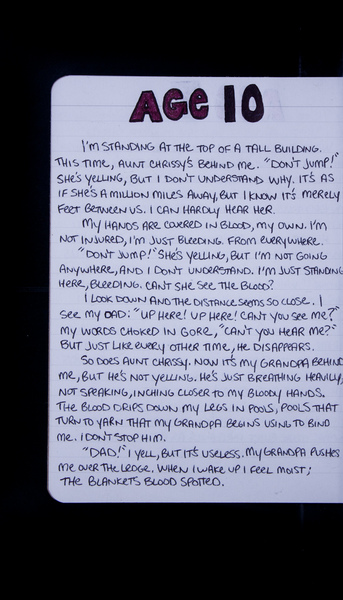 AGE 10
I'M STANDING AT THE TOP OF A TALL BUILDING.
THIS TIME, AUNT CHRISSY'S BEHIND ME. "DON'T JUMP!"
SHE'S YELLING, BUT I DON'T UNDERSTAND WHY. IT'S AS
IF SHE'S A MILLION MILES AWAY, BUT I KNOW IT'S MERELY
FEET BETWEEN US. I CAN HARDLY HEAR HER.
MY HANDS ARE COVERED IN BLOOD, MY OWN. I'M
NOT INJURED, I'M JUST BLEEDING. FROM EVERYWHERE.
"DON'T JUMP!" SHE'S YELLING, BUT I'M NOT GOING
ANYWHERE, AND I DON'T UNDERSTAND. I'M JUST STANDING
HERE, BLEEDING. CAN'T SHE SEE THE BLOOD?
I LOOK DOWN AND THE DISTANCE SEEMS SO CLOSE. I
SEE MY DAD: "UP HERE! UP HERE! CAN'T YOU SEE ME?"
MY WORDS CHOKED IN GORE, "CAN'T YOU HEAR ME?"
BUT JUST LIKE EVERY OTHER TIME, HE DISAPPEARS.
SO DOES AUNT CHRISSY. NOW IT'S MY GRANDPA BEHIND
ME, BUT HE'S NOT YELLING. HE'S JUST BREATHING HEAVILY,
NOT SPEAKING, INCHING CLOSER TO MY BLOODY HANDS.
THE BLOOD DRIPS DOWN MY LEGS IN POOLS, POOLS THAT
TURN TO YARN THAT MY GRANDPA BEGINS USING TO BIND
ME. I DON'T STOP HIM.
"DAD!" I YELL, BUT IT'S USELESS. MY GRANDPA PUSHES
ME OVER THE LEDGE. WHEN I WAKE UP I FEEL MOIST;
THE BLANKETS BLOOD SPOTTED.